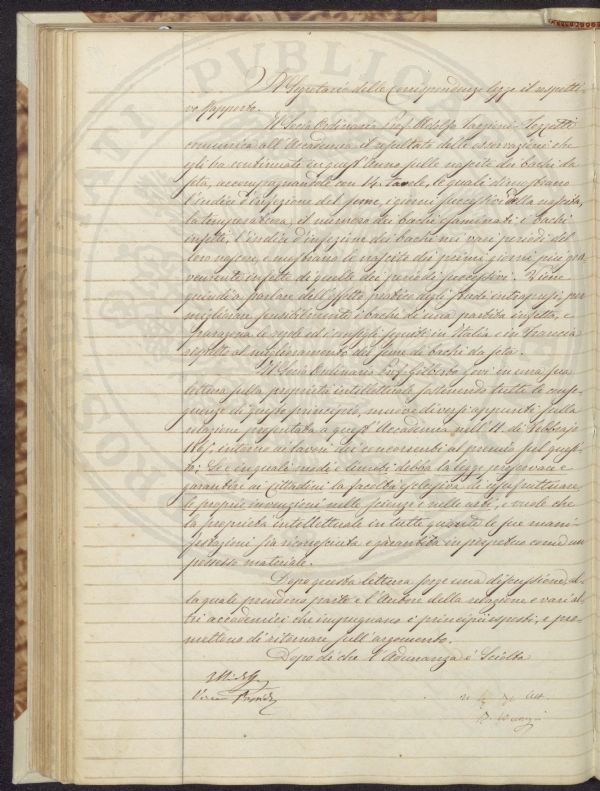 Il Segretario delle Corrispondenze legge il rispetti-
vo Rapporto.
Il Socio Ordinario Prof. Adolfo Targioni-Tozzetti
comunica all'Accademia il resultato delle osservazioni che
egli ha continuate in quest'anno sulle nascite dei bachi da
seta, accompagnandole con 14 tavole, le quali dimostrano
l'indice d'infezione del seme, i giorni successivi della nascita,
la temperatura, il numero dei bachi esaminati, i bachi
infetti, l'indice d'infezione dei bachi nei vari periodi del
loro nascere, e mostrano le nascite dei primi giorni più gra-
vemente infette di quelle dei periodi successivi. Viene
quindi a parlare dell'effetto pratico degli studi intrapresi, per
migliorare sensibilmente i bachi di una partita infetta, e
paragona le regole ed i consigli seguiti in Italia e in Francia
rispetto al miglioramento del seme di bachi da seta.
Il Socio Ordinario Prof. Gilberto Govi in una sua
lettera sulla proprietà intellettuale sostenendo tutte le conse-
guenze di questo principio, muove diversi appunti sulla
relazione presentata a quest'Accademia nell'11 di Febbrajo
intorno ai lavori dei concorrenti al premio sul quesi-
to: Se e in quali modi e limiti debba la legge provare e
garantire ai cittadini la facoltà esclusiva di usufruttuare
le proprie invenzioni nelle scienze e nelle arti, e vuole che
la proprietà intellettuale in tutte quante le sue mani-
festazioni sia riconosciuta e garantita in perpetuo come un
possesso materiale.
Dopo questa lettera sorge una discussione, al-
la quale prendono parte e l'Autore della relazione e vari al-
tri accademici che impugnano i principii esposti, e pro-
mettono di ritornare sull'argomento.
Dopo di che l'Adunanza è Sciolta